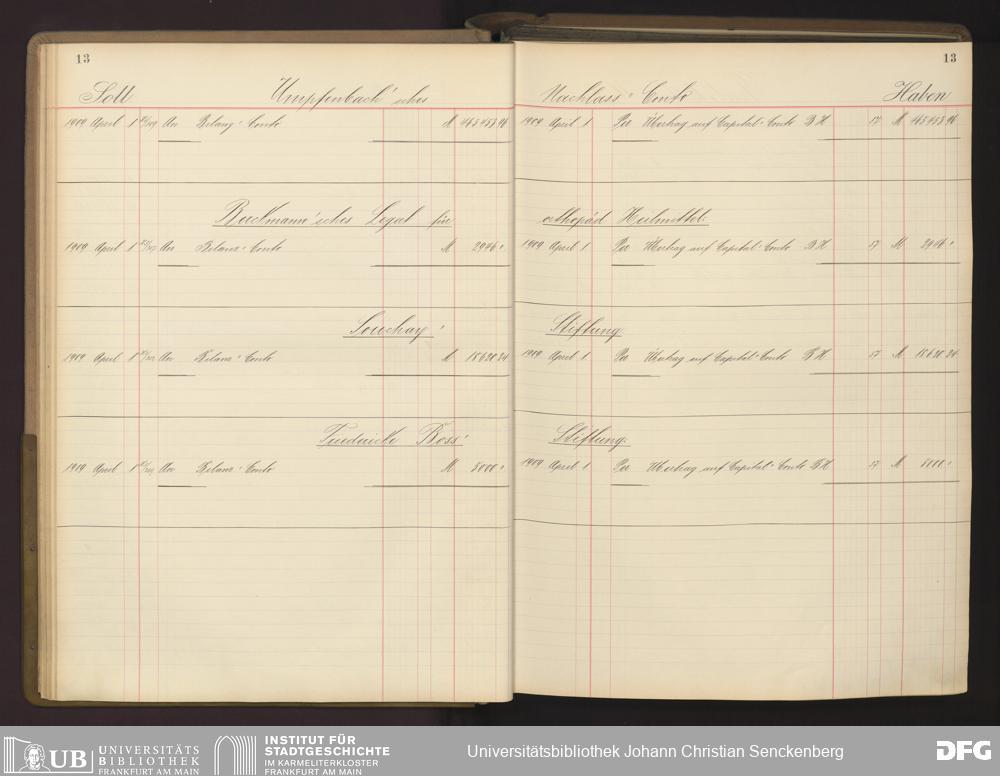 13
Soll Umpfenbach'sches
1909 April 1 An Bilanz-Conto M
Beckmann'sches Legat für
1909 April 1 An Bilanz-Conto M
Souchay'
1909 April 1 An Bilanz-Conto M 18621.24
Friedericke Ross'
1909 April 1 An Bilanz-Conto M 5000.
13
Nachlass-Conto Haben
1909 April 1 Per Übertrag auf Capital-Conto B H 17 M
orthopäd. Heilmethode
1909 April 1 Per Übertrag auf Capital-Conto B H 17 M
Stiftung
1909 April 1 Per Übertrag auf Capital-Conto B H 17 M 18621.24
Stiftung.
1909 April 1 Per Übertrag auf Capital-Conto B H 17 M 5000.
UB UNIVERSITÄTS
BIBLIOTHEK
FRANKFURT AM MAIN
INSTITUT FÜR
STADTGESCHICHTE
IM KARMELITERKLOSTER
FRANKFURT AM MAIN
Universitätsbibliothek Johann Christian Senckenberg
DFG